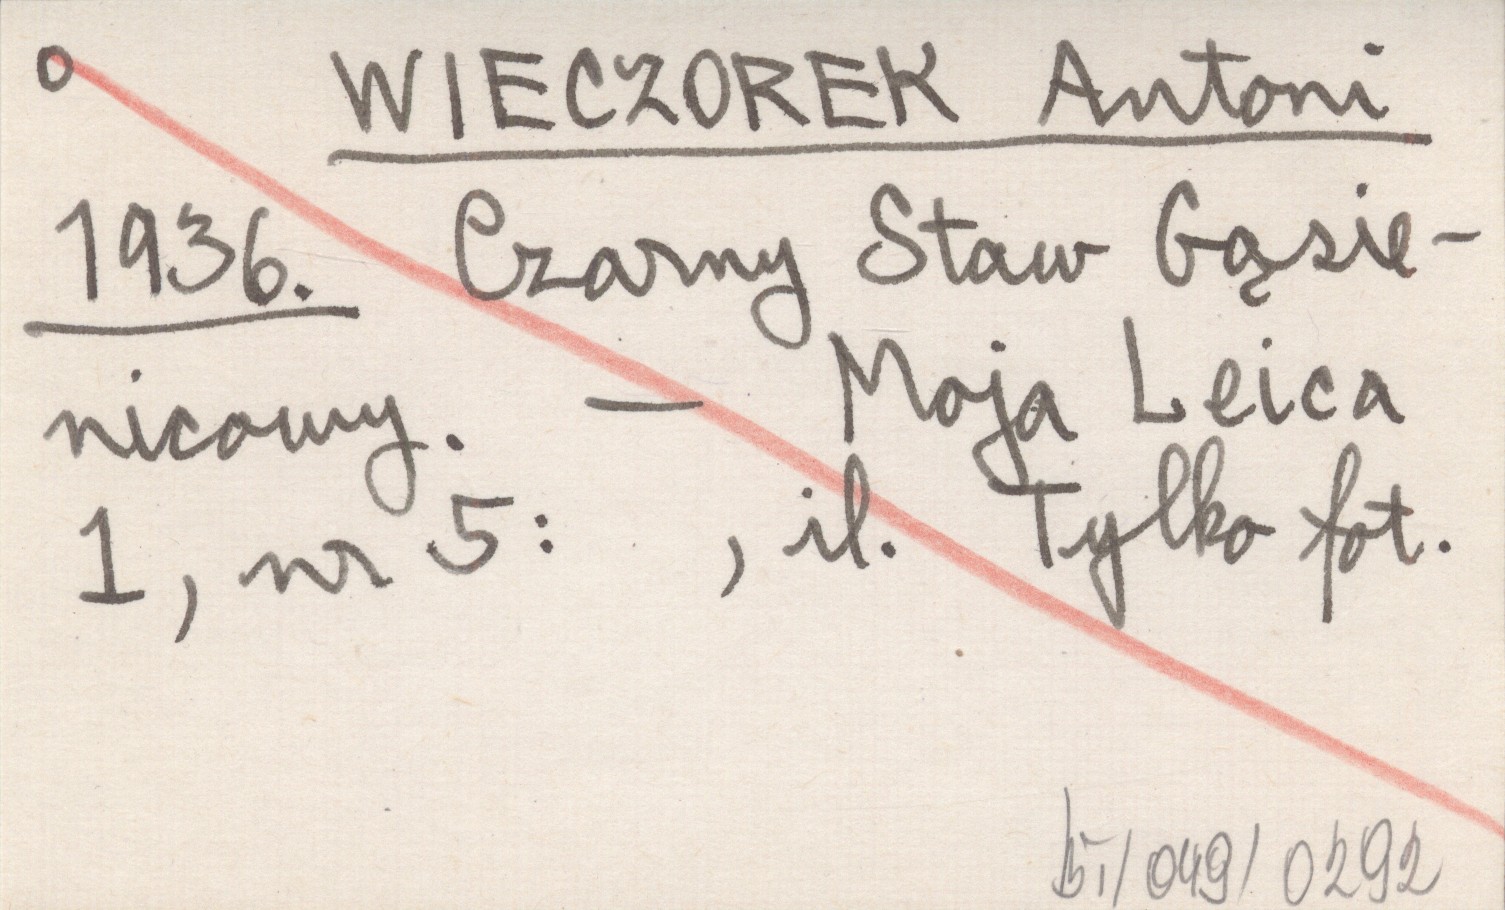 o WIECZOREK Antoni
1936. Czarny Staw Gąsie-
nicowy. — Moja Leica
1, nr 5: , il. Tylko fot.
bi/049/0292